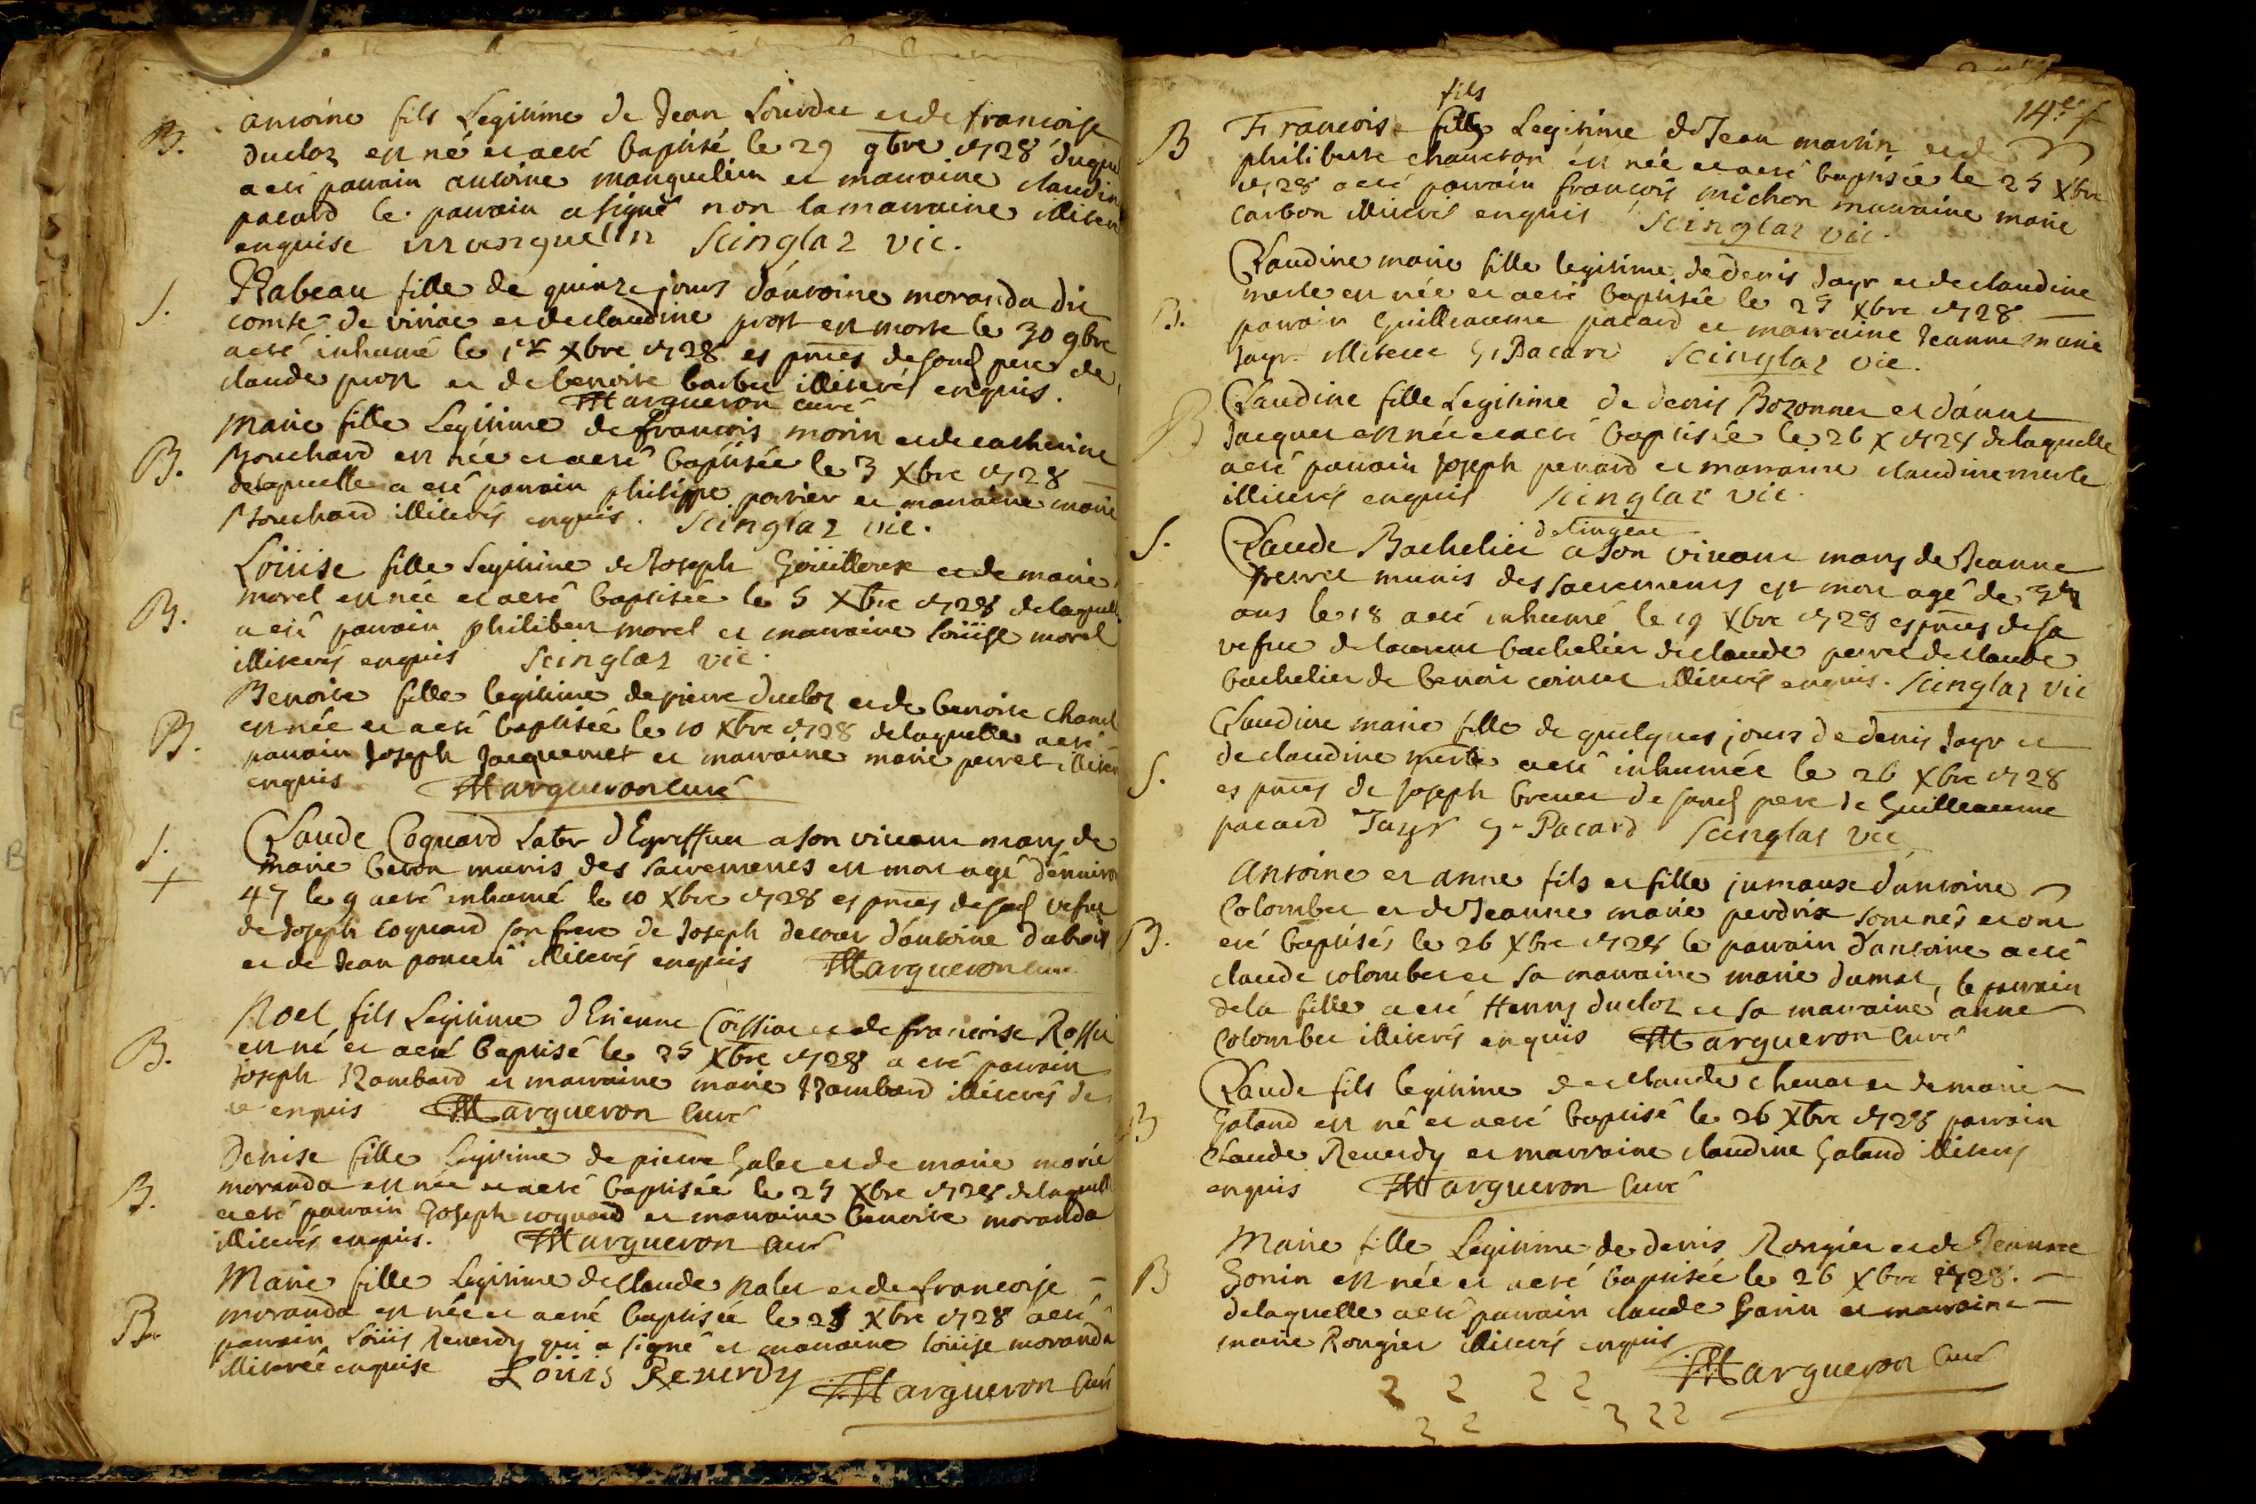 B. antoine fils Legitime de Jean Lourdu et de francoise
ducloz est né et a eté baptisé le 29 9bre 1728 duquel
a eté parrain antoine manguelin et marraine claudine
pacard le parrain a signé non la marraine illiteré
enquise manguelin Scinglaz vic.
S. Isabeau fille de quinze jours d'antoine moranda dit
comte de viriac et de claudine prost est morte le 30 9bre
a eté inhumé le 1er Xbre 1728 es pntes de sond pere de
claude prost et de benoite barbet illiterés enquis.
Margueron curé
B. Marie fille Legitime de francois morin et de catherine
Bouchard est née et a eté baptisée le 3 Xbre 1728
delaquelle a eté parrain philippe perrier et marraine marie
Bouchard illiterés enquis. Scinglaz vic.
B. Loüise fille Legitime de Joseph Goüilloux et de marie
morel est née et a eté baptisée le 5 Xbre 1728 delaquelle
a eté parrain philibert morel et marraine loüise morel
illiterés enquis Scinglaz vic.
B. Benoite fille legitime de pierre ducloz et de benoite chanel
est née et a eté baptisée le 10 Xbre 1728 delaquelle a eté
parrain Joseph Jacquemet et marraine marie perret illiterés
enquis Margueron curé
S. Claude Coquard Later d'Egreffeu a son vivant mary de
+ marie beron munis des sacrements est mort agé d'environ
47 le 9 a eté inhumé le 10 Xbre 1728 es pntes de sad vefve
de Joseph coquard son frere de Joseph decour d'antoine dubois
et de Jean poncet illiterés enquis Margueron curé
B. Noel fils Legitime d'Etienne Coissiac et de francoise Rosset
est né et a eté baptisé le 25 Xbre 1728 a eté parrain
Joseph Rambard et marraine marie Rambard illiterés de
ce enquis Margueron Curé
B. Denise fille Legitime de pierre Galet et de marie marie
moranda est née et a eté baptisée le 25 Xbre 1728 delaquelle
a eté parrain Joseph coquard et marraine benoite moranda
illiterés enquis. Margueron curé
B. Marie fille Legitime de claude nalet et de francoise
moranda est née et a eté baptisée le 25 Xbre 1728 a eté
parrain Loüis Reverdy qui a signé et marraine loüise moranda
illiterée enquise Loüis Reverdy Margueron Curé
14e f
fils
B Francois fille Legitime de Jean martin et de
philiberte chaneron est née et a eté baptisée le 25 Xbre
1728 a eté parrain francois michon marraine marie
Carbon illiterés enquis Scinglaz vic.
B. Claudine marie fille legitime de denis Jayr et de claudine
merle est née et a eté baptisée le 25 Xbre 1728
parrain Guilleaume pacard et marraine Jeanne marie
Jayr illiteree G. Pacard Scinglaz vic.
B Claudine fille Legitime de denis Bozonnet et d'anne
Jacquet est née et a eté baptisée le 26 X 1728 delaquelle
a eté parrain Joseph penard et marraine claudine merle
illiterés enquis Scinglaz vic.
de lingeat
S. Claude Bachelier a son vivant mary de Jeanne
perret munis des sacrements est mort agé de
ans le 18 a eté inhumé le 19 Xbre 1728 es pntes de sa
vefve de laurent bachelier de claude perret de claude
bachelier de benoit cornier illiterés enquis. Scinglaz vic
S. Claudine marie fille de quelques jours de denis Jayr et
de claudine merle a eté inhumée le 26 Xbre 1728
es pntes de Joseph brevet de sond pere de Guilleaume
pacard Jayr G. Pacard Scinglaz vic
B. Antoine et anne fils et fille jumaux d'antoine
Colombet et de Jeanne marie perdrix sont nés et ont
eté baptisés le 26 Xbre 1728 le parrain d'antoine a eté
claude colombet et sa marraine marie dumas, le parrain
de la fille a eté Henry ducloz et sa marraine anne
Colombet illiterés enquis Margueron Curé
B Claude fils legitime de claude chenar et de marie
Galand est né et a eté baptisé le 26 Xbre 1728 parrain
Claude Reverdy et marraine claudine Galand illiterés
enquis Margueron Curé
B Marie fille Legitime de denis Rongier et de Jeanne
Gonin est née et a eté baptisée le 26 Xbre 1728.
delaquelle a eté parrain claude Garin et marraine
marie Rongier illiterés enquis
Margueron Curé
2 2 2 2
2 2 2 2 2